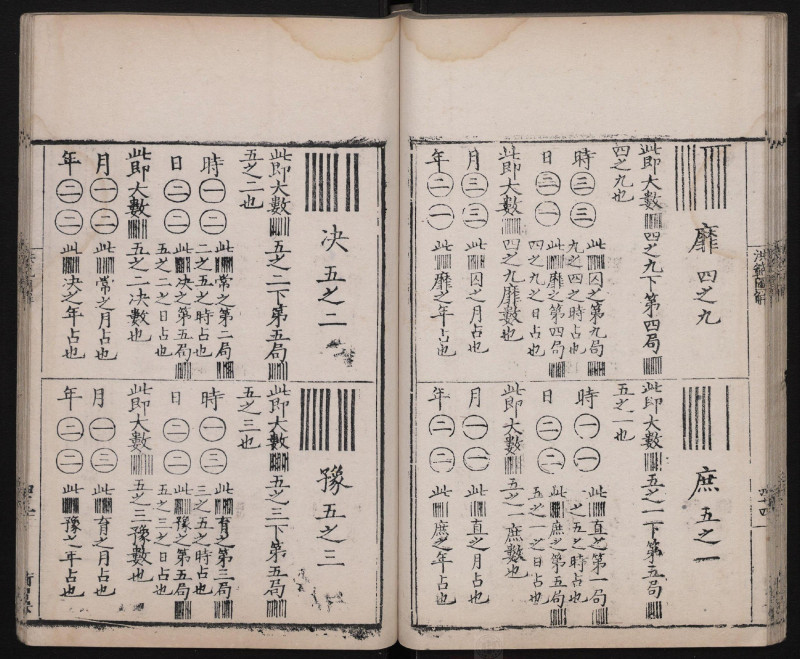 靡 四之九
此即大數四之九下第四局
四之九也
時 三 三 此囚之第九局
九之四之時占也
日 二 一 此靡之第四局
四之九之日占也
此即大數四之九靡數也
月 三 三 此囚之月占也
年 二 一 此靡之年占也
庶 五之一
此即大數五之一下第五局
五之一也
時 一 一 此直之第一局
一之五之時占也
日 二 二 此庶之第五局
五之一之日占也
此即大數五之一庶數也
月 一 一 此直之月占也
年 二 二 此庶之年占也
决 五之二
此即大數五之二下第五局
五之二也
時 一 二 此常之第二局
二之五之時占也
日 二 二 此决之第五局
五之二之日占也
此即大數五之二决數也
月 一 二 此常之月占也
年 二 二 此决之年占也
豫 五之三
此即大數五之三下第五局
五之三也
時 一 三 此育之第三局
三之五之時占也
日 二 二 此豫之第五局
五之三之日占也
此即大數五之三豫數也
月 一 三 此育之月占也
年 二 二 此豫之年占也